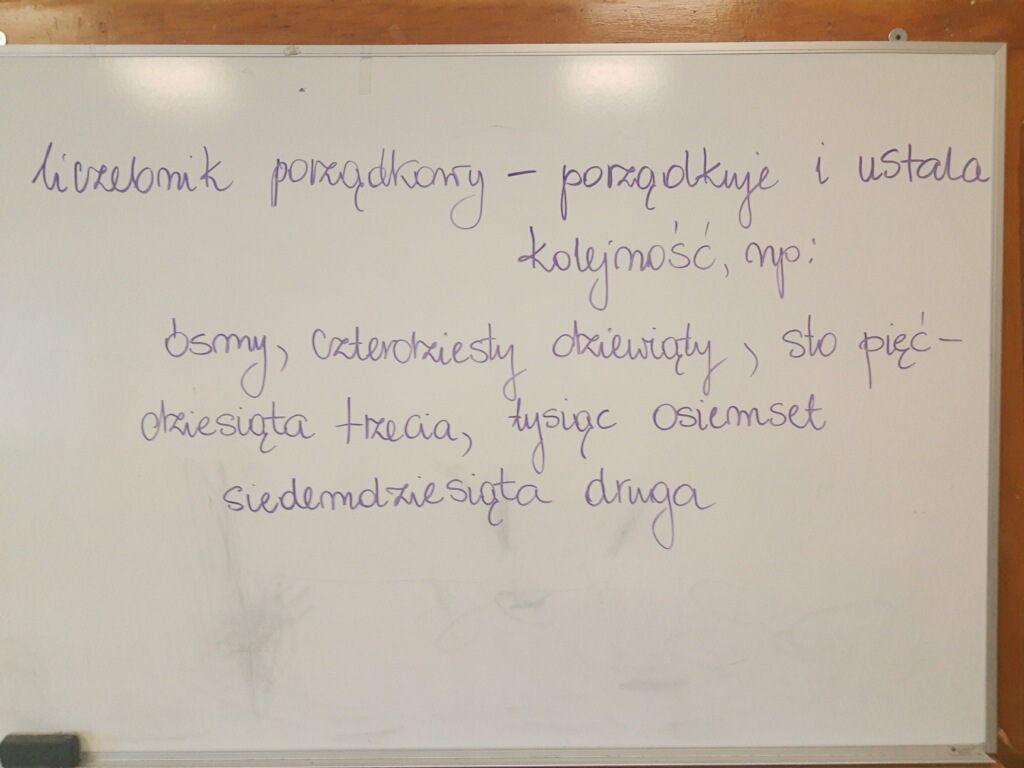 liczebnik porządkowy – porządkuje i ustala
kolejność, np:
ósmy, czterdziesty dziewiąty, sto pięć-
dziesiąta trzecia, tysiąc osiemset
siedemdziesiąta druga